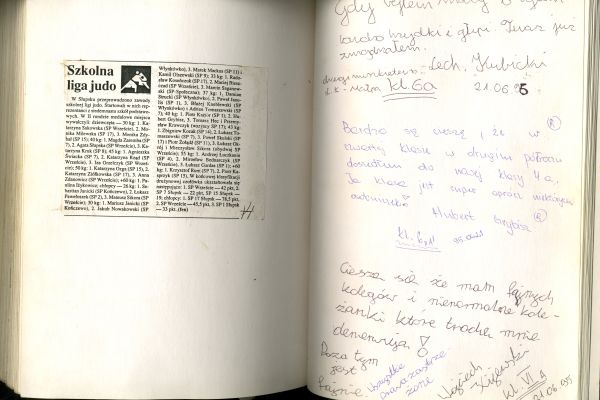 Szkolna
liga judo
W Słupsku przeprowadzono zawody
szkolnej ligi judo. Startowali w nich rep-
rezentanci z siedemnastu szkół podstawo-
wych. W II rundzie medalowe miejsca
wywalczyli: dziewczęta — 30 kg: 1. Ka-
tarzyna Sakowska (SP Wrzeście), 2. Mo-
nika Milewska (SP 17), 3. Monika
(SP 15); 40 kg: 1. Magda Zaremba (SP
7), 2. Agata Słupska (SP Wrzeście), 3. Ka-
tarzyna Kruk (SP 8); 45 kg: 1. Agnieszka
Świacka (SP 7), 2. Katarzyna Rząd (SP
Wrzeście), 3. Iza Oreńczyk (SP Wrześ-
cie); 50 kg: 1. Katarzyna Orga (SP 15), 2.
Katarzyna Ziółkowska (SP 17), 3. Anna
Zdanowicz (SP Wrzeście), +60 kg: 1. Pa-
ulina Dykowicz; chłopcy — 28 kg: 1. Se-
bastian Janicki (SP Kończewo), 2. Łukasz
Pawełoszek (SP 2), 3. Mateusz Sikora (SP
Wrzeście); 30 kg: 1. Mariusz Janicki (SP
Kończewo), 2. Jakub Nowakowski (SP
Włynkówko), 3. Marek Markus (SP 11) i
Kamil Olszewski (SP 9); 33 kg: 1. Rado-
sław Kosobrzuk (SP 17), 2. Maciej Bieniek
(SP Wrzeście), 3. Marcin Saganow-
ski (SP Społeczna); 37 kg: 1. Damian
Strucki (SP Włynkówko), 2. Paweł
(SP 1), 3. Błażej Kozłowski (SP
Włynkówko) i Adrian Tomaszewski (SP
7); 40 kg: 1. Piotr Kozior (SP 1), 2. Hu-
bert Grybisz, 3. Tomasz Hec i Przemy-
sław Krawczyk (wszyscy SP 17); 43 kg:
1. Zbigniew Kozak (SP 14), 2. Łukasz To-
maszewski (SP 7), 3. Paweł Słaziński (SP
17) i Piotr Żołądź (SP 11), 3. Ok-
raj i Mieczysław Sikora (obydwaj SP
Wrzeście); 55 kg: 1. Andrzej Łuczkanin
(SP 4), 2. Mirosław Bednarczyk (SP
Wrzeście), 3. Łukasz Garlea (SP 1); +60
kg: 1. Krzysztof Rost (SP 7), 2. Piotr Ka-
sprzyk (SP 15). W końcowej klasyfikacji
drużynowej czołówka ukształtowała się
następująco: 1. SP Wrzeście — 42 pkt, 2.
SP 7 Słupsk — 22 pkt, SP 15 Słupsk —
19; chłopcy: 1. SP 17 Słupsk — 78,5 pkt,
2. SP Wrzeście — 45,5 pkt, 3. SP 1 Słupsk
— 33 pkt. (fen)
Gdy byłem młody to byłem
bardzo brzydki i głupi. Teraz już
zmądrzałem.
Lech Kubicki
kl. 6a 21.06 95
Bardzo się cieszę, że w
czwartej klasie w drugim półroczu
doszedłem do naszej klasy 4a.
Ta klasa jest super oprócz niektórych
Hubert Grybisz
kl. 6a
Cieszę się że mam fajnych
kolegów i nienormalne kole-
żanki które trochę mnie
denerwują!
Poza tym
jest
fajnie
Wojciech
kl. VI A
21.06.95